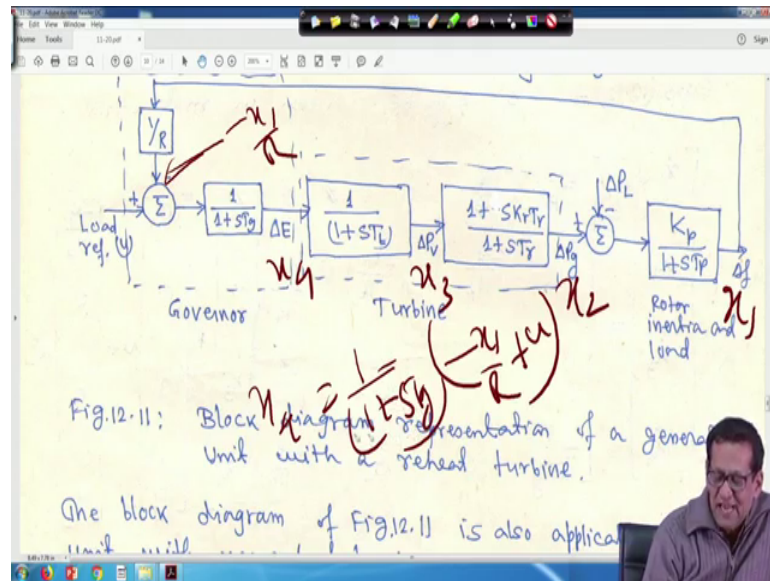 11-20.pdf - Adobe Acrobat Reader DC
File Edit View Window Help
Home Tools 11-20.pdf × Sign
10 / 24 200%
1/R
-x1/R
Σ
+
Load ref. (u)
1/(1+STg)
ΔE
1/(1+STt)
ΔPv
(1+SKrTr)/(1+STr)
ΔPg
+
ΔPL
-
Σ
Kp/(1+STp)
Δf
x4
x3
x2
x1
Governor
Turbine
Rotor
inertia and
load
x4 = 1/(1+STg) (-x1/R + u)
Fig.12.11: Block diagram representation of a gener
Unit with a reheat turbine.
The block diagram of Fig.12.11 is also applica